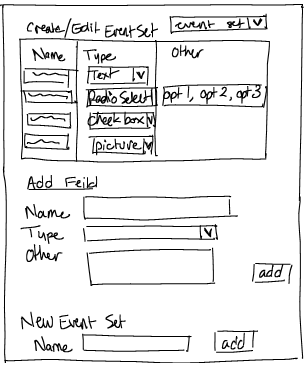 Create/Edit EventSet event set
Name Type Other
Text
Radio Select opt 1, opt 2, opt 3
Check box
picture
Add Feild
Name
Type
Other
add
New Event Set
Name add